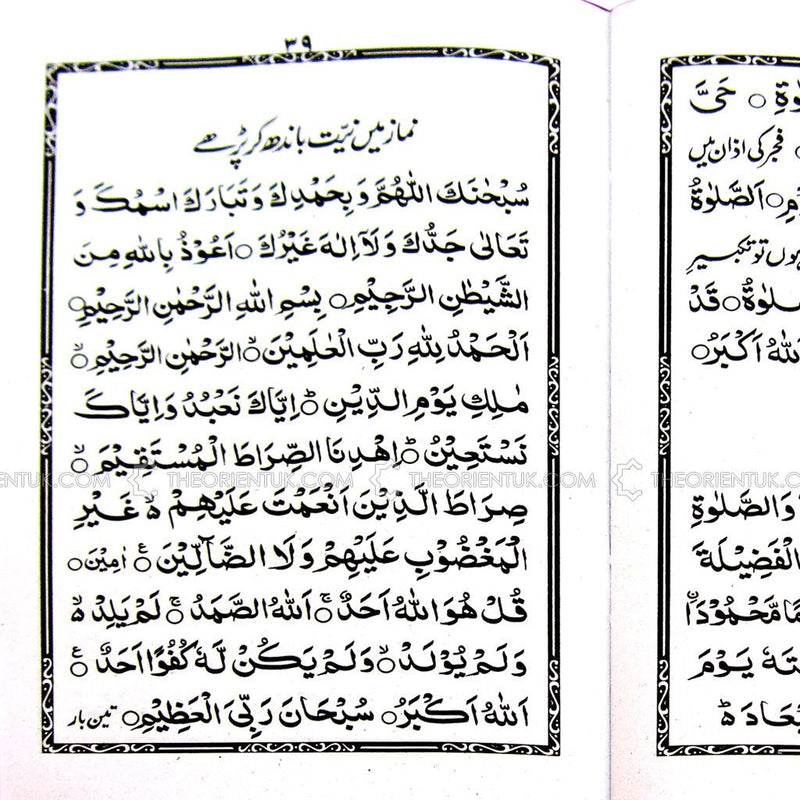 ٣٩
نماز میں نیّت باندھ کر پڑھے
سُبْحٰنَكَ اللّٰهُمَّ وَبِحَمْدِكَ وَتَبَارَكَ اسْمُكَ وَ
تَعَالٰى جَدُّكَ وَلَآ اِلٰهَ غَيْرُكَ ○ اَعُوْذُ بِاللّٰهِ مِنَ
الشَّيْطٰنِ الرَّجِيْمِ ○ بِسْمِ اللّٰهِ الرَّحْمٰنِ الرَّحِيْمِ ○
اَلْحَمْدُ لِلّٰهِ رَبِّ الْعٰلَمِيْنَ ○ۙ الرَّحْمٰنِ الرَّحِيْمِ ○ۙ
مٰلِكِ يَوْمِ الدِّيْنِ ○ؕ اِيَّاكَ نَعْبُدُ وَاِيَّاكَ
نَسْتَعِيْنُ ○ؕ اِهْدِنَا الصِّرَاطَ الْمُسْتَقِيْمَ ○ۙ
صِرَاطَ الَّذِيْنَ اَنْعَمْتَ عَلَيْهِمْ ۙ۬ غَيْرِ
الْمَغْضُوْبِ عَلَيْهِمْ وَلَا الضَّآلِّيْنَ ○ اٰمِيْنَ ○
قُلْ هُوَ اللّٰهُ اَحَدٌ ○ اَللّٰهُ الصَّمَدُ ○ لَمْ يَلِدْ ۙ۬
وَلَمْ يُوْلَدْ ○ۙ وَلَمْ يَكُنْ لَّهٗ كُفُوًا اَحَدٌ ○
اَللّٰهُ اَكْبَرُ ○ سُبْحَانَ رَبِّىَ الْعَظِيْمِ ○ تین بار
ـوةِ ○ حَىَّ
فجر کی اذان میں
ـمِ ○ اَلصَّلٰوةُ
ہوں تو تکبیر
ـلٰوةُ ○ قَدْ
اَللّٰهُ اَكْبَرُ ○
وَالصَّلٰوةِ
الْفَضِيْلَةَ
ـمًا مَّحْمُوْدَا
ـتَهٗ يَوْمَ
ـعَادَ ○ؕ
THEORIENTUK.COM THEORIENTUK.COM THEORIENTUK.COM THEORIENTUK.COM